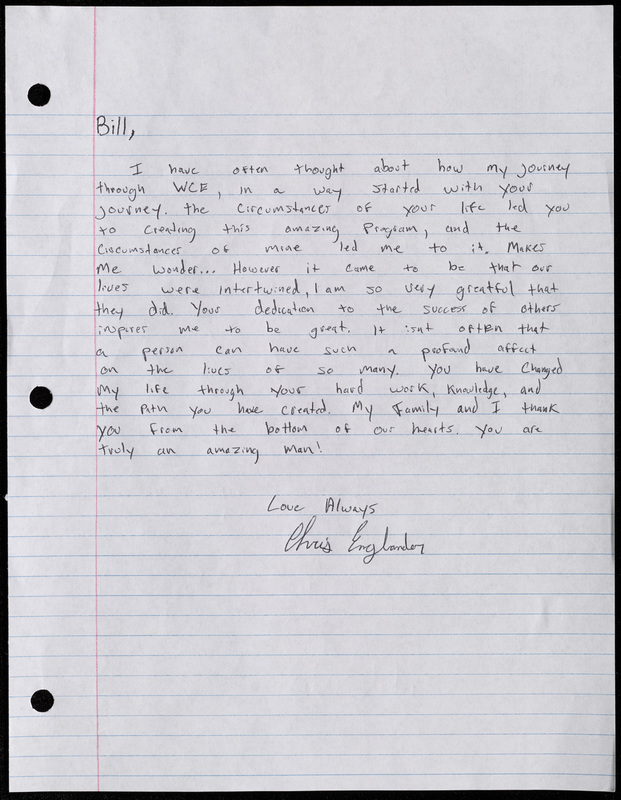 Bill,
I have often thought about how my journey
through WCE, in a way started with your
journey. the circumstances of your life led you
to creating this amazing Program, and the
circumstances of mine led me to it. Makes
me wonder... However it came to be that our
lives were intertwined, I am so very greatful that
they did. Your dedication to the success of others
inspires me to be great. It isnt often that
a person can have such a profand affect
on the lives of so many. You have changed
my life through your hard work, knowledge, and
the Path you have created. My Family and I thank
you from the bottom of our hearts. You are
truly an amazing man!
Love Always
Chris Englander